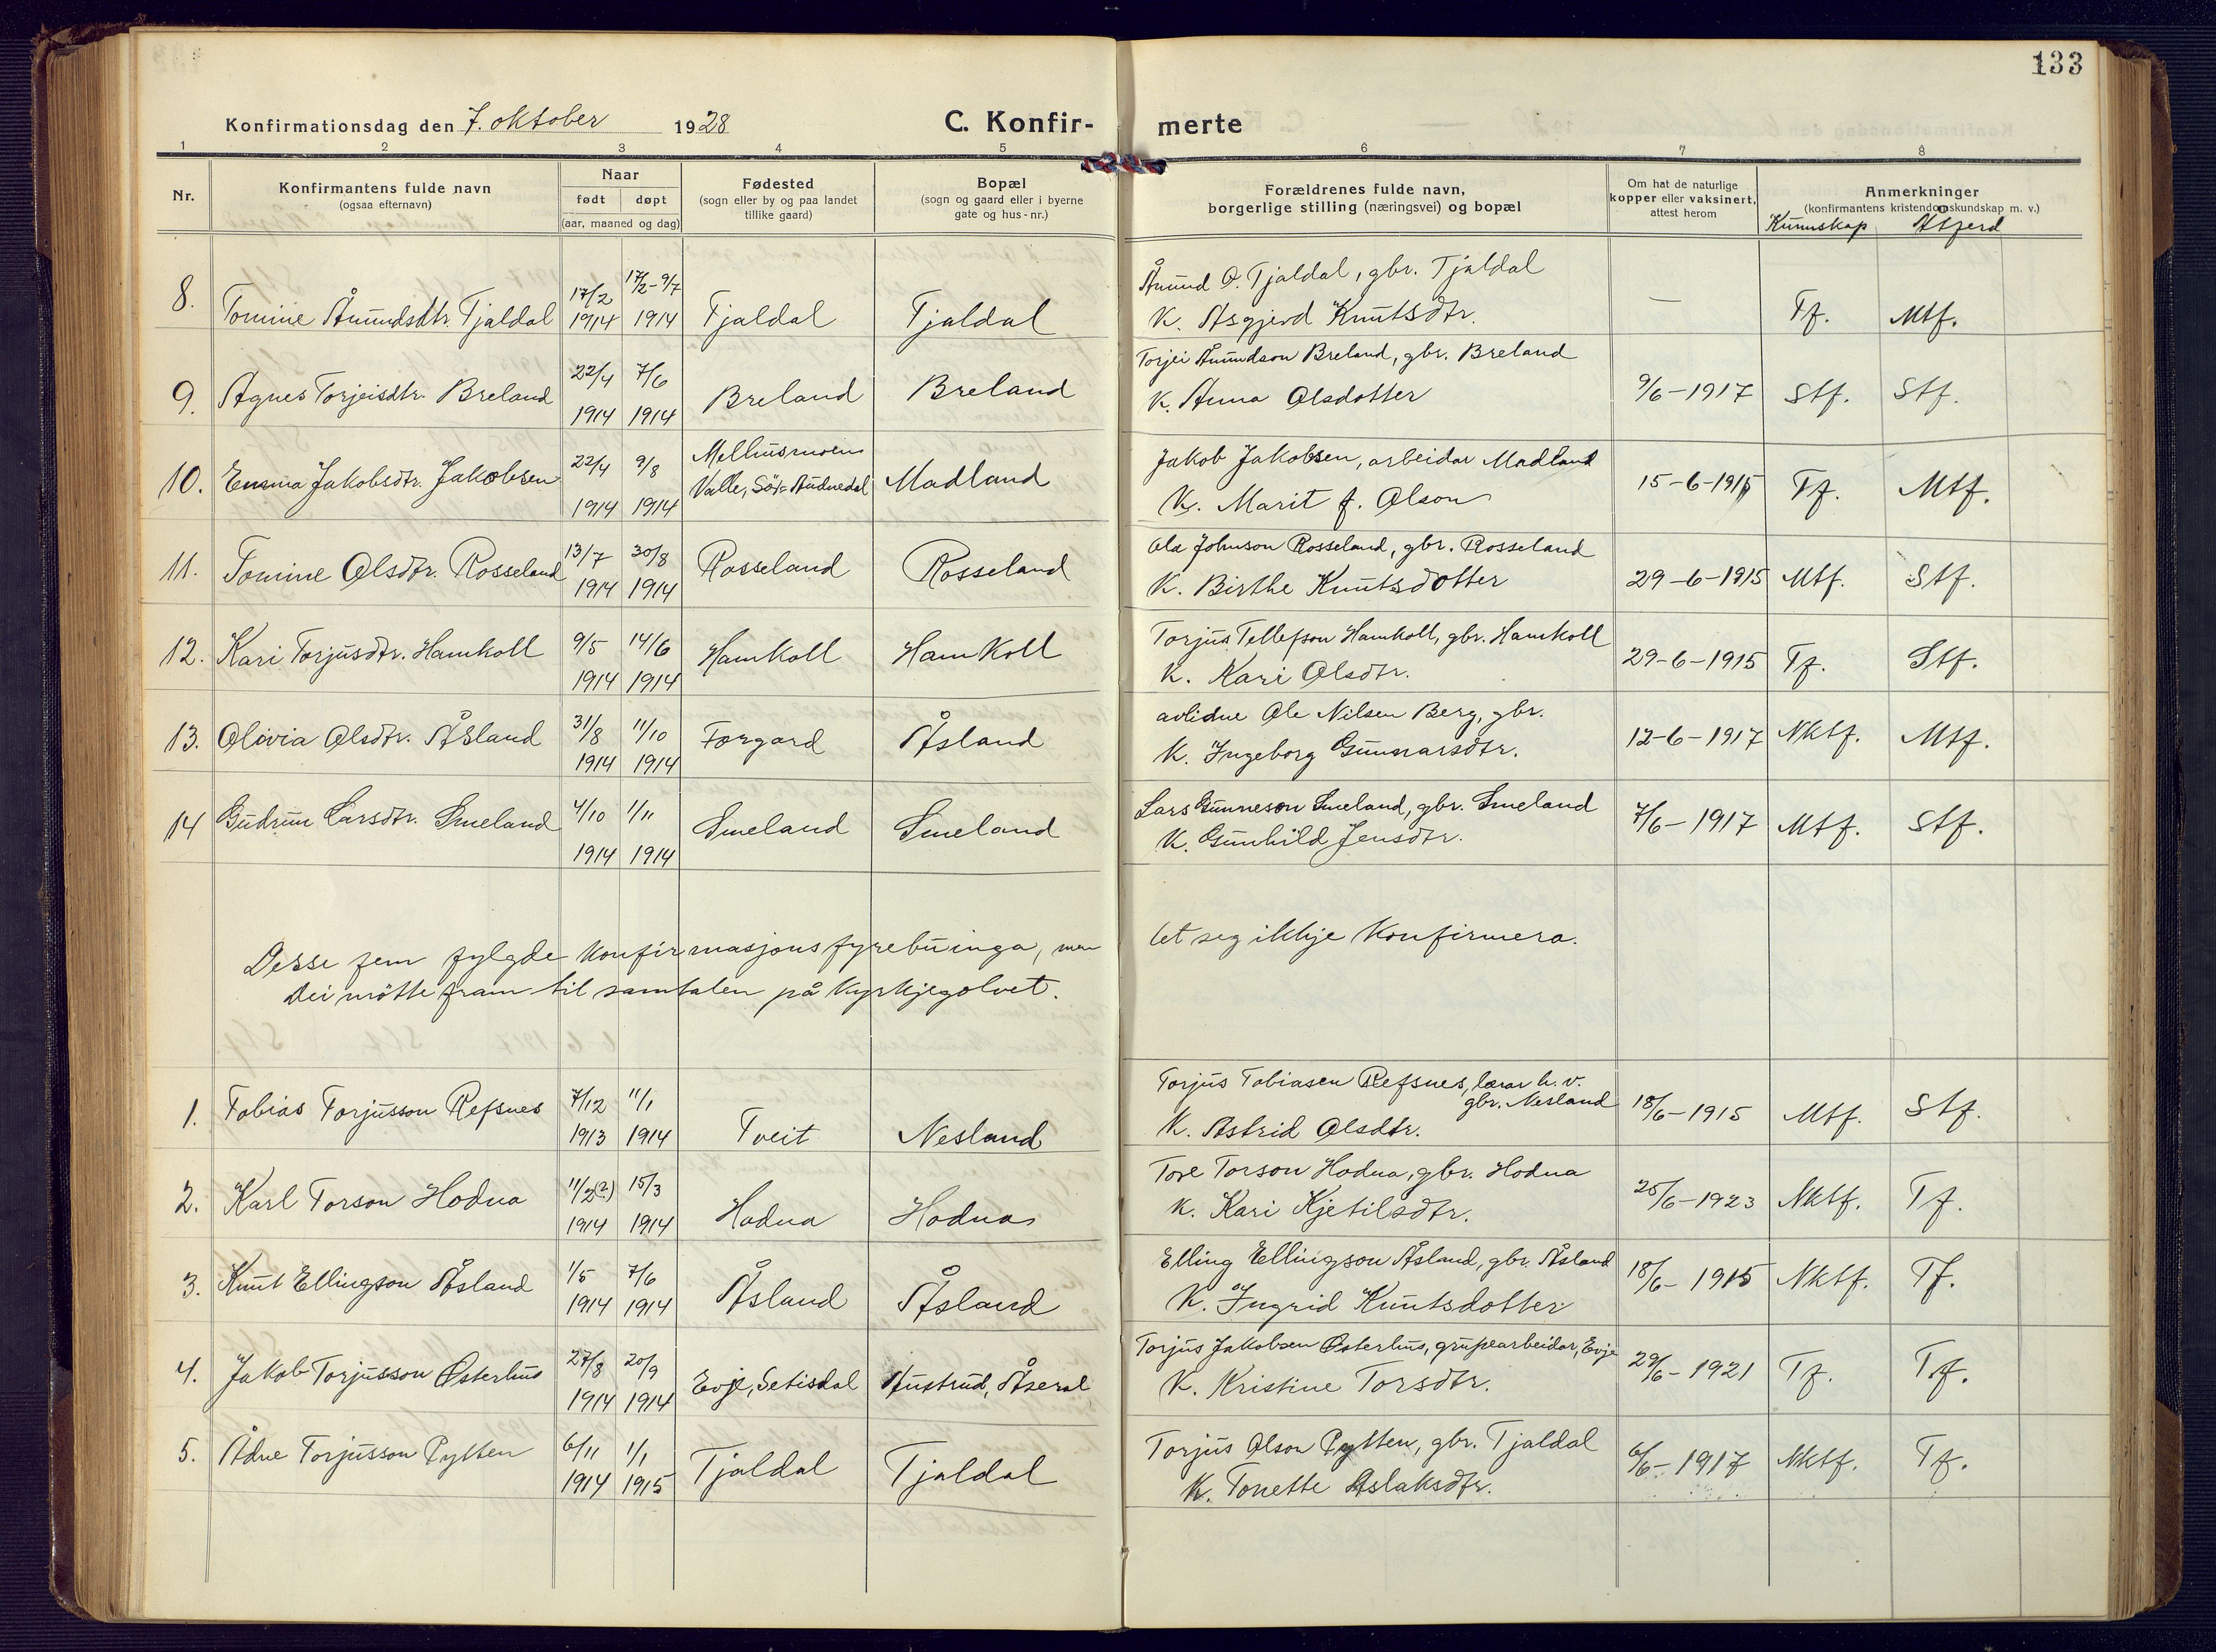 133
Konfirmationsdag den 7. oktober 1928
C. Konfir-
merte
1 2 3 4 5 6 7 8
Nr.
Konfirmantens fulde navn
(ogsaa efternavn)
Naar
født døpt
(aar, maaned og dag)
Fødested
(sogn eller by og paa landet
tillike gaard)
Bopæl
(sogn og gaard eller i byerne
gate og hus-nr.)
Forældrenes fulde navn,
borgerlige stilling (næringsvei) og bopæl
Om hat de naturlige
kopper eller vaksinert,
attest herom
Anmerkninger
(konfirmantens kristendomskundskap m. v.)
Kunnskap Åtferd
Åmund O. Tjaldal, gbr. Tjaldal
8. Tomine Åmundsdtr. Tjaldal 17/2 1914 17/2-9/7 1914 Tjaldal Tjaldal
K. Asgjerd Knutsdtr. — Tf. Mtf.
Torjei Åmundson Breland, gbr. Breland
9. Agnes Torjeisdtr. Breland 22/4 1914 7/6 1914 Breland Breland
K. Anna Olsdotter 9/6-1917 Stf. Stf.
Melhusmoen
Jakob Jakobsen, arbeidar Madland
10. Emma Jakobsdtr. Jakobsen 22/4 1914 9/8 1914 Valle, Sör-Audnedal Madland
K. Marit f. Olson 15-6-1915 Tf. Mtf.
Ola Johnson Rosseland, gbr. Rosseland
11. Tomine Olsdtr. Rosseland 13/7 1914 30/8 1914 Rosseland Rosseland
K. Birthe Knutsdotter 29-6-1915 Mtf. Stf.
Torjus Tellefson Hamkoll, gbr. Hamkoll
12. Kari Torjusdtr. Hamkoll 9/5 1914 14/6 1914 Hamkoll Hamkoll
K. Kari Olsdtr. 29-6-1915 Tf. Stf.
avlidne Ole Nilsen Berg, gbr.
13. Olivia Olsdtr. Åsland 31/8 1914 11/10 1914 Forgard Åsland
K. Ingeborg Gunnarsdtr. 12-6-1917 Nktf. Mtf.
Lars Gunneson Smeland, gbr. Smeland
14 Gudrun Larsdtr. Smeland 4/10 1914 1/11 1914 Smeland Smeland
K. Gunhild Jensdtr. 7/6-1917 Mtf. Stf.
Desse fem fylgde konfirmasjonsfyrebuinga, men let seg ikkje konfirmera.
Dei møtte fram til samtalen på kyrkjegolvet.
Torjus Tobiasen Refsnes, lærar h. v.
gbr. Nesland
1. Tobias Torjusson Refsnes 7/12 1913 11/1 1914 Tveit Nesland
K. Astrid Olsdtr. 18/6-1915 Mtf. Stf.
Tore Torson Hodna, gbr. Hodna
2. Karl Torson Hodna 11/2(?) 1914 15/3 1914 Hodna Hodna
K. Kari Kjetilsdtr. 25/6-1923 Nktf. Tf.
Elling Ellingson Åsland, gbr. Åsland
3. Knut Ellingson Åsland 1/5 1914 7/6 1914 Åsland Åsland
K. Ingrid Knutsdotter 18/6-1915 Nktf. Tf.
Torjus Jakobsen Østerhus, grupearbeidar, Evje
4. Jakob Torjusson Østerhus 27/8 1914 20/9 1914 Evje, Setisdal Austrud, Åseral
K. Kristine Torsdtr. 29/6-1921 Tf. Tf.
Torjus Olson Pytten, gbr. Tjaldal
5. Ådne Torjusson Pytten 6/11 1914 1/1 1915 Tjaldal Tjaldal
K. Tonette Aslaksdtr. 6/6-1917 Nktf. Tf.